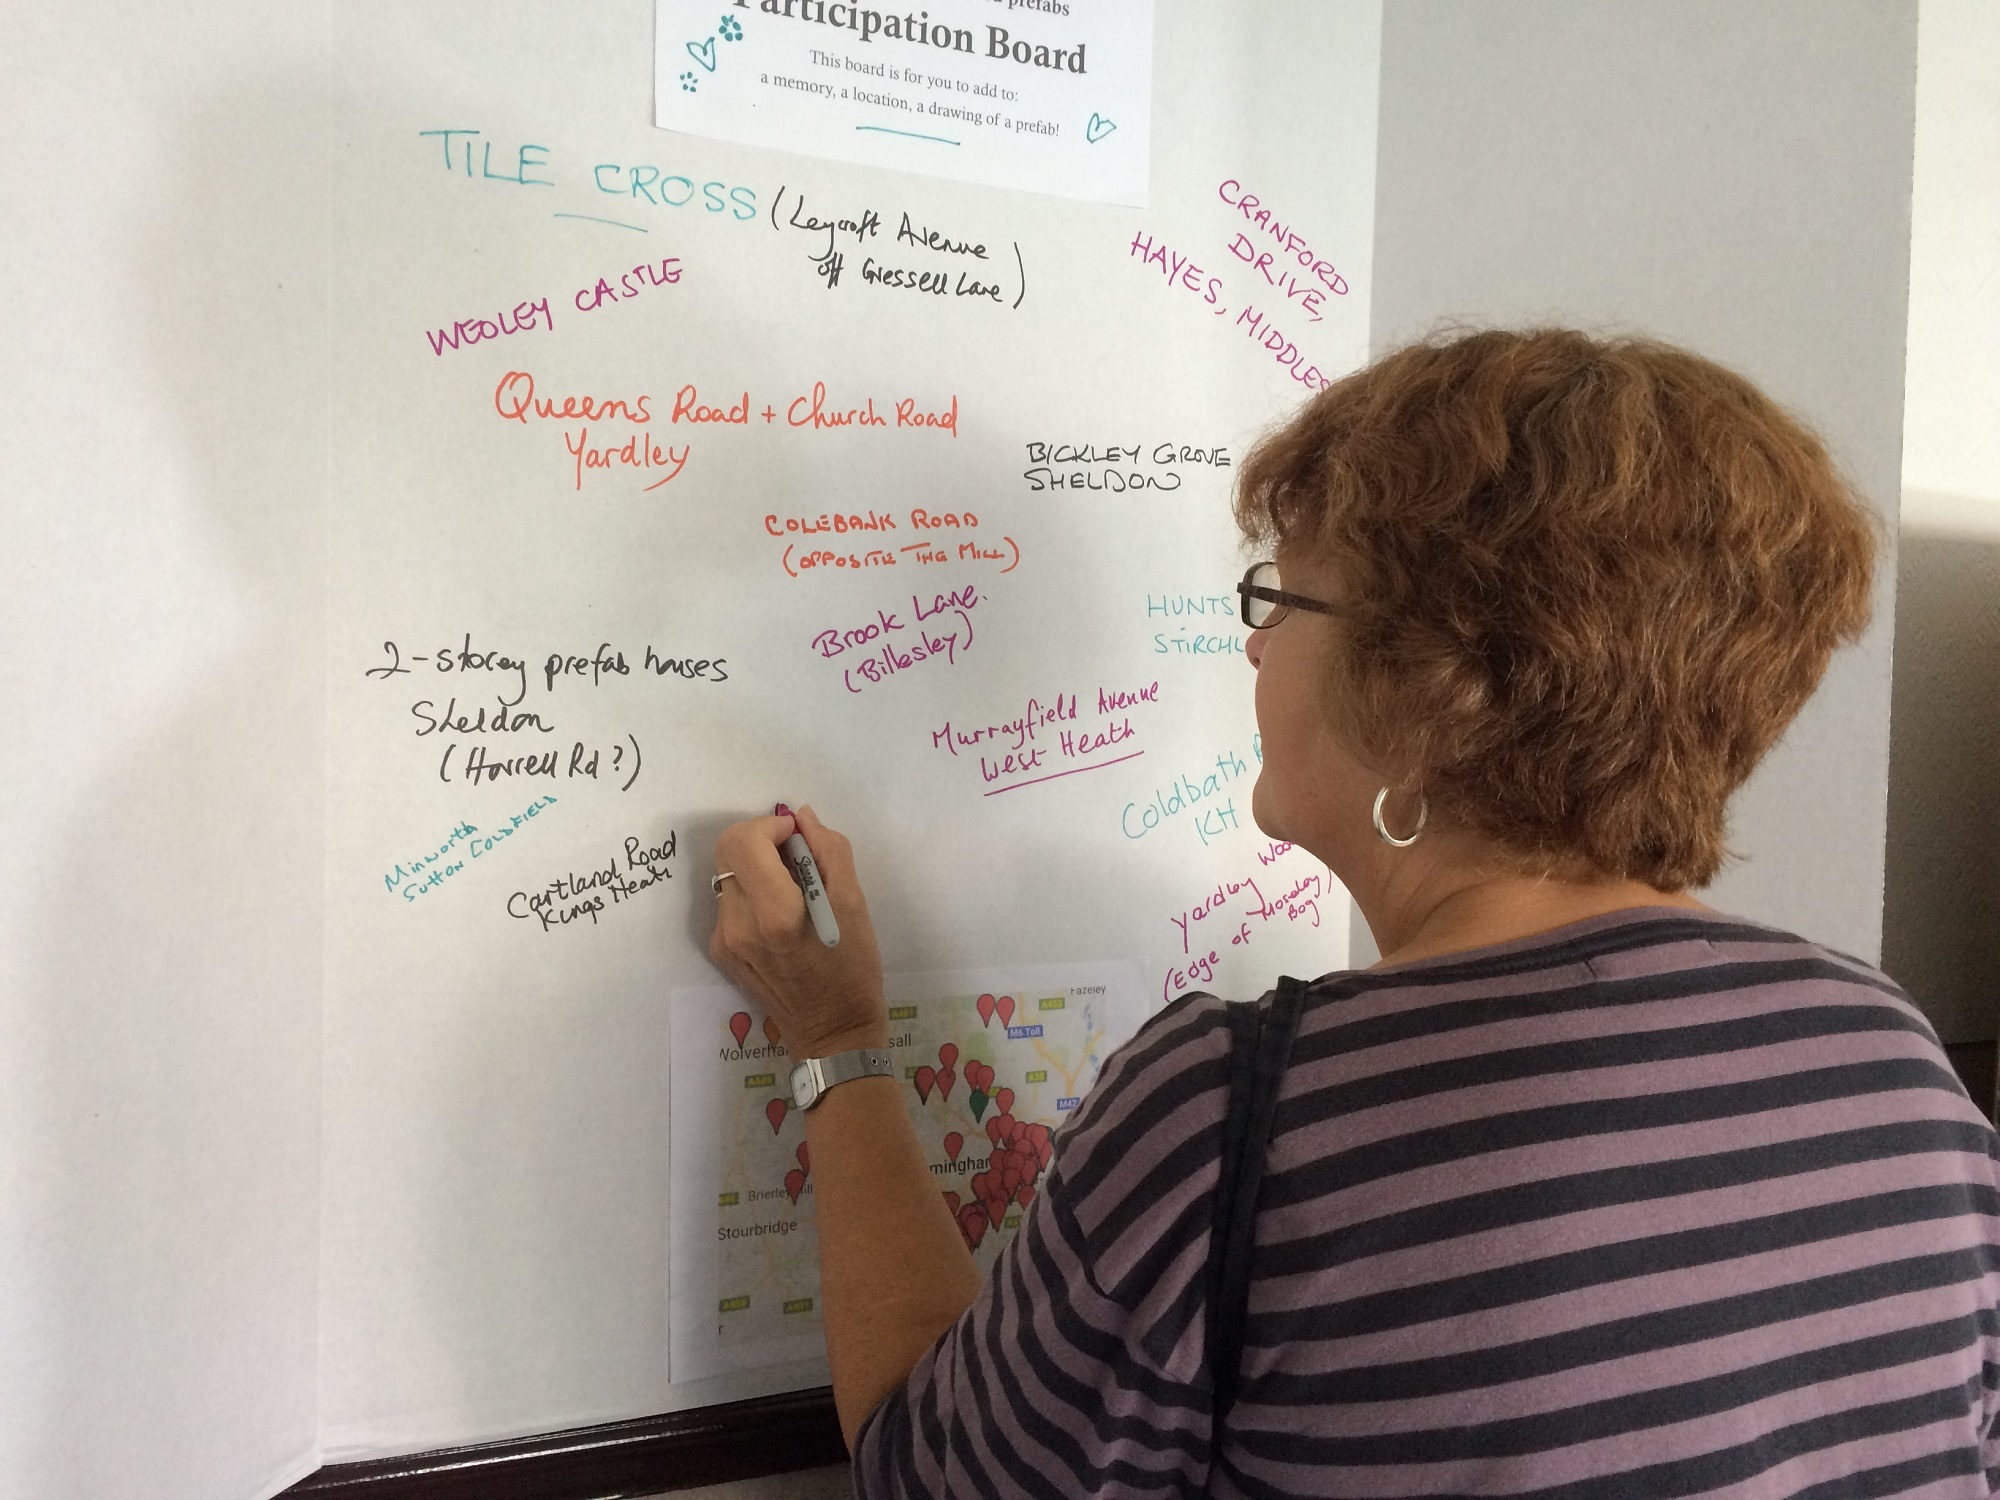 prefabs
Participation Board
This board is for you to add to:
a memory, a location, a drawing of a prefab!
TILE CROSS (Leycroft Avenue
off Gressell Lane)
WEOLEY CASTLE
CRANFORD
DRIVE,
HAYES, MIDDLES
Queens Road + Church Road
Yardley
BICKLEY GROVE
SHELDON
COLEBANK ROAD
(OPPOSITE THE MILL)
Brook Lane.
(Billesley)
HUNTS
STIRCHL
2-storey prefab houses
Sheldon
(Horrell Rd?)
Murrayfield Avenue
West Heath
Coldbath
KH
Minworth
SUTTON COLDFIELD
Cartland Road
Kings Heath
Yardley Woo
(Edge of Moseley
Bog)
Sharpie
Fazeley
A461
A453
M6 Toll
Wolverha
sall
A449
A38
M42
mingham
Brierley Hill
Stourbridge
A450
A491
r